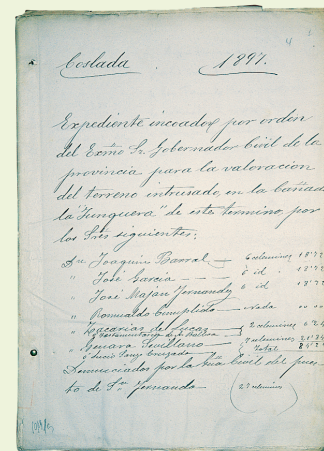 Coslada. 1897.
Expediente incoado por orden
del Exmo Sr. Gobernador Civil de la
provincia para la valoracion
del terreno intrusado, en la Cañada
la "Junquera" de este termino, por
los Sres siguientes:
Dn Joaquin Barral — 6 celemines
" José Garcia — 6 id
" José Majan Fernandez 6 id
" Romualdo Cumplido — Nada
" Zacarias de Lucas 2 celemines
" Genara Sevillano — 7 celemines
Total
Denunciados por la Gua Civil del pues
to de Sn Fernando (27 celemines)